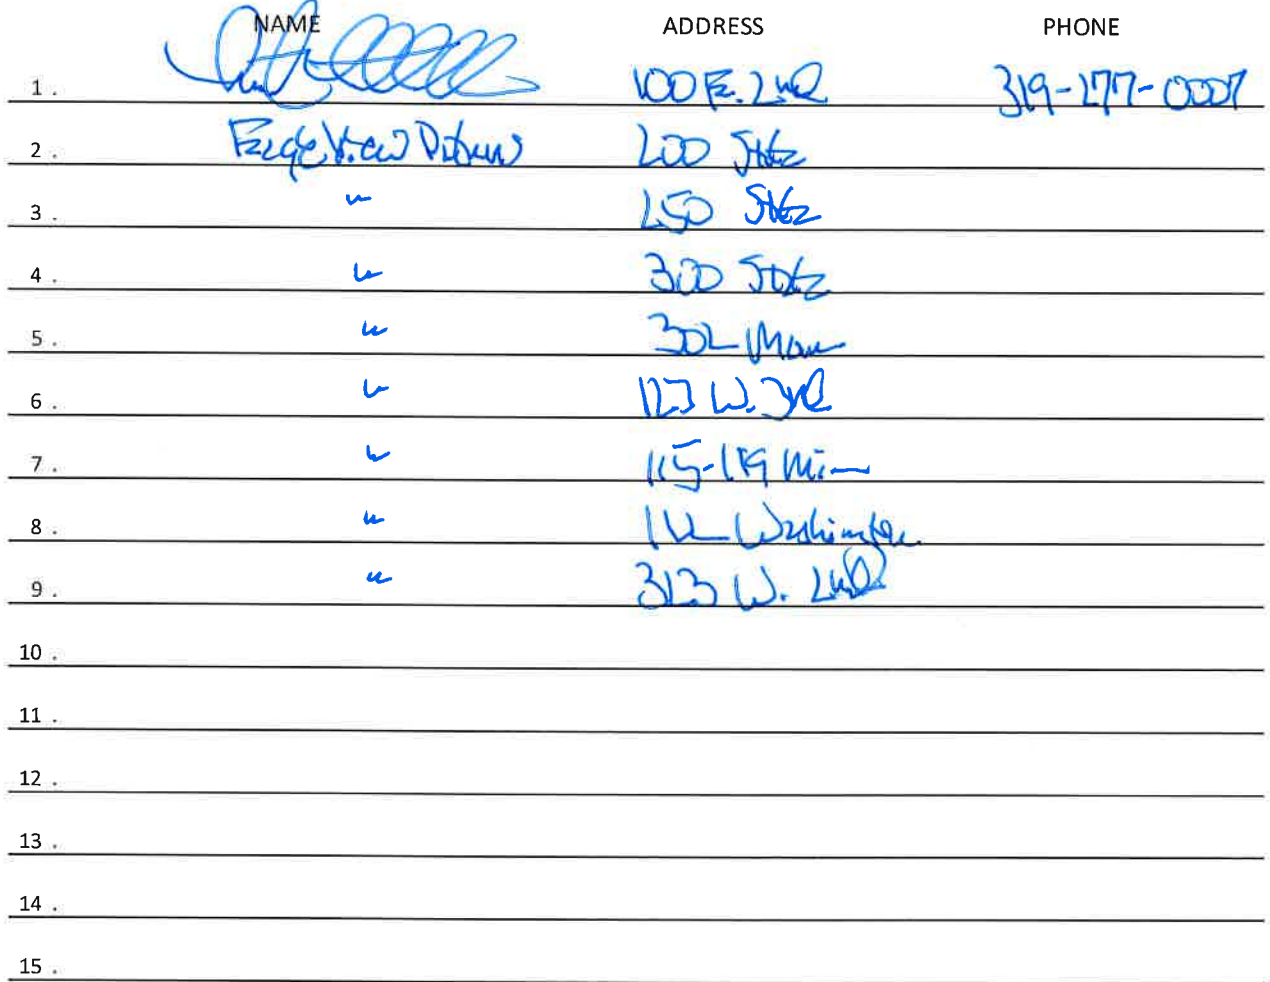 NAME ADDRESS PHONE
1. 100 E. 2nd 319-277-0007
2. Eagle View Partners 200 State
3. " 250 State
4. " 300 State
5. " 302 Main
6. " 123 W. 3rd
7. " 115-119 Main
8. " 112 Washington
9. " 323 W. 2nd
10.
11.
12.
13.
14.
15.